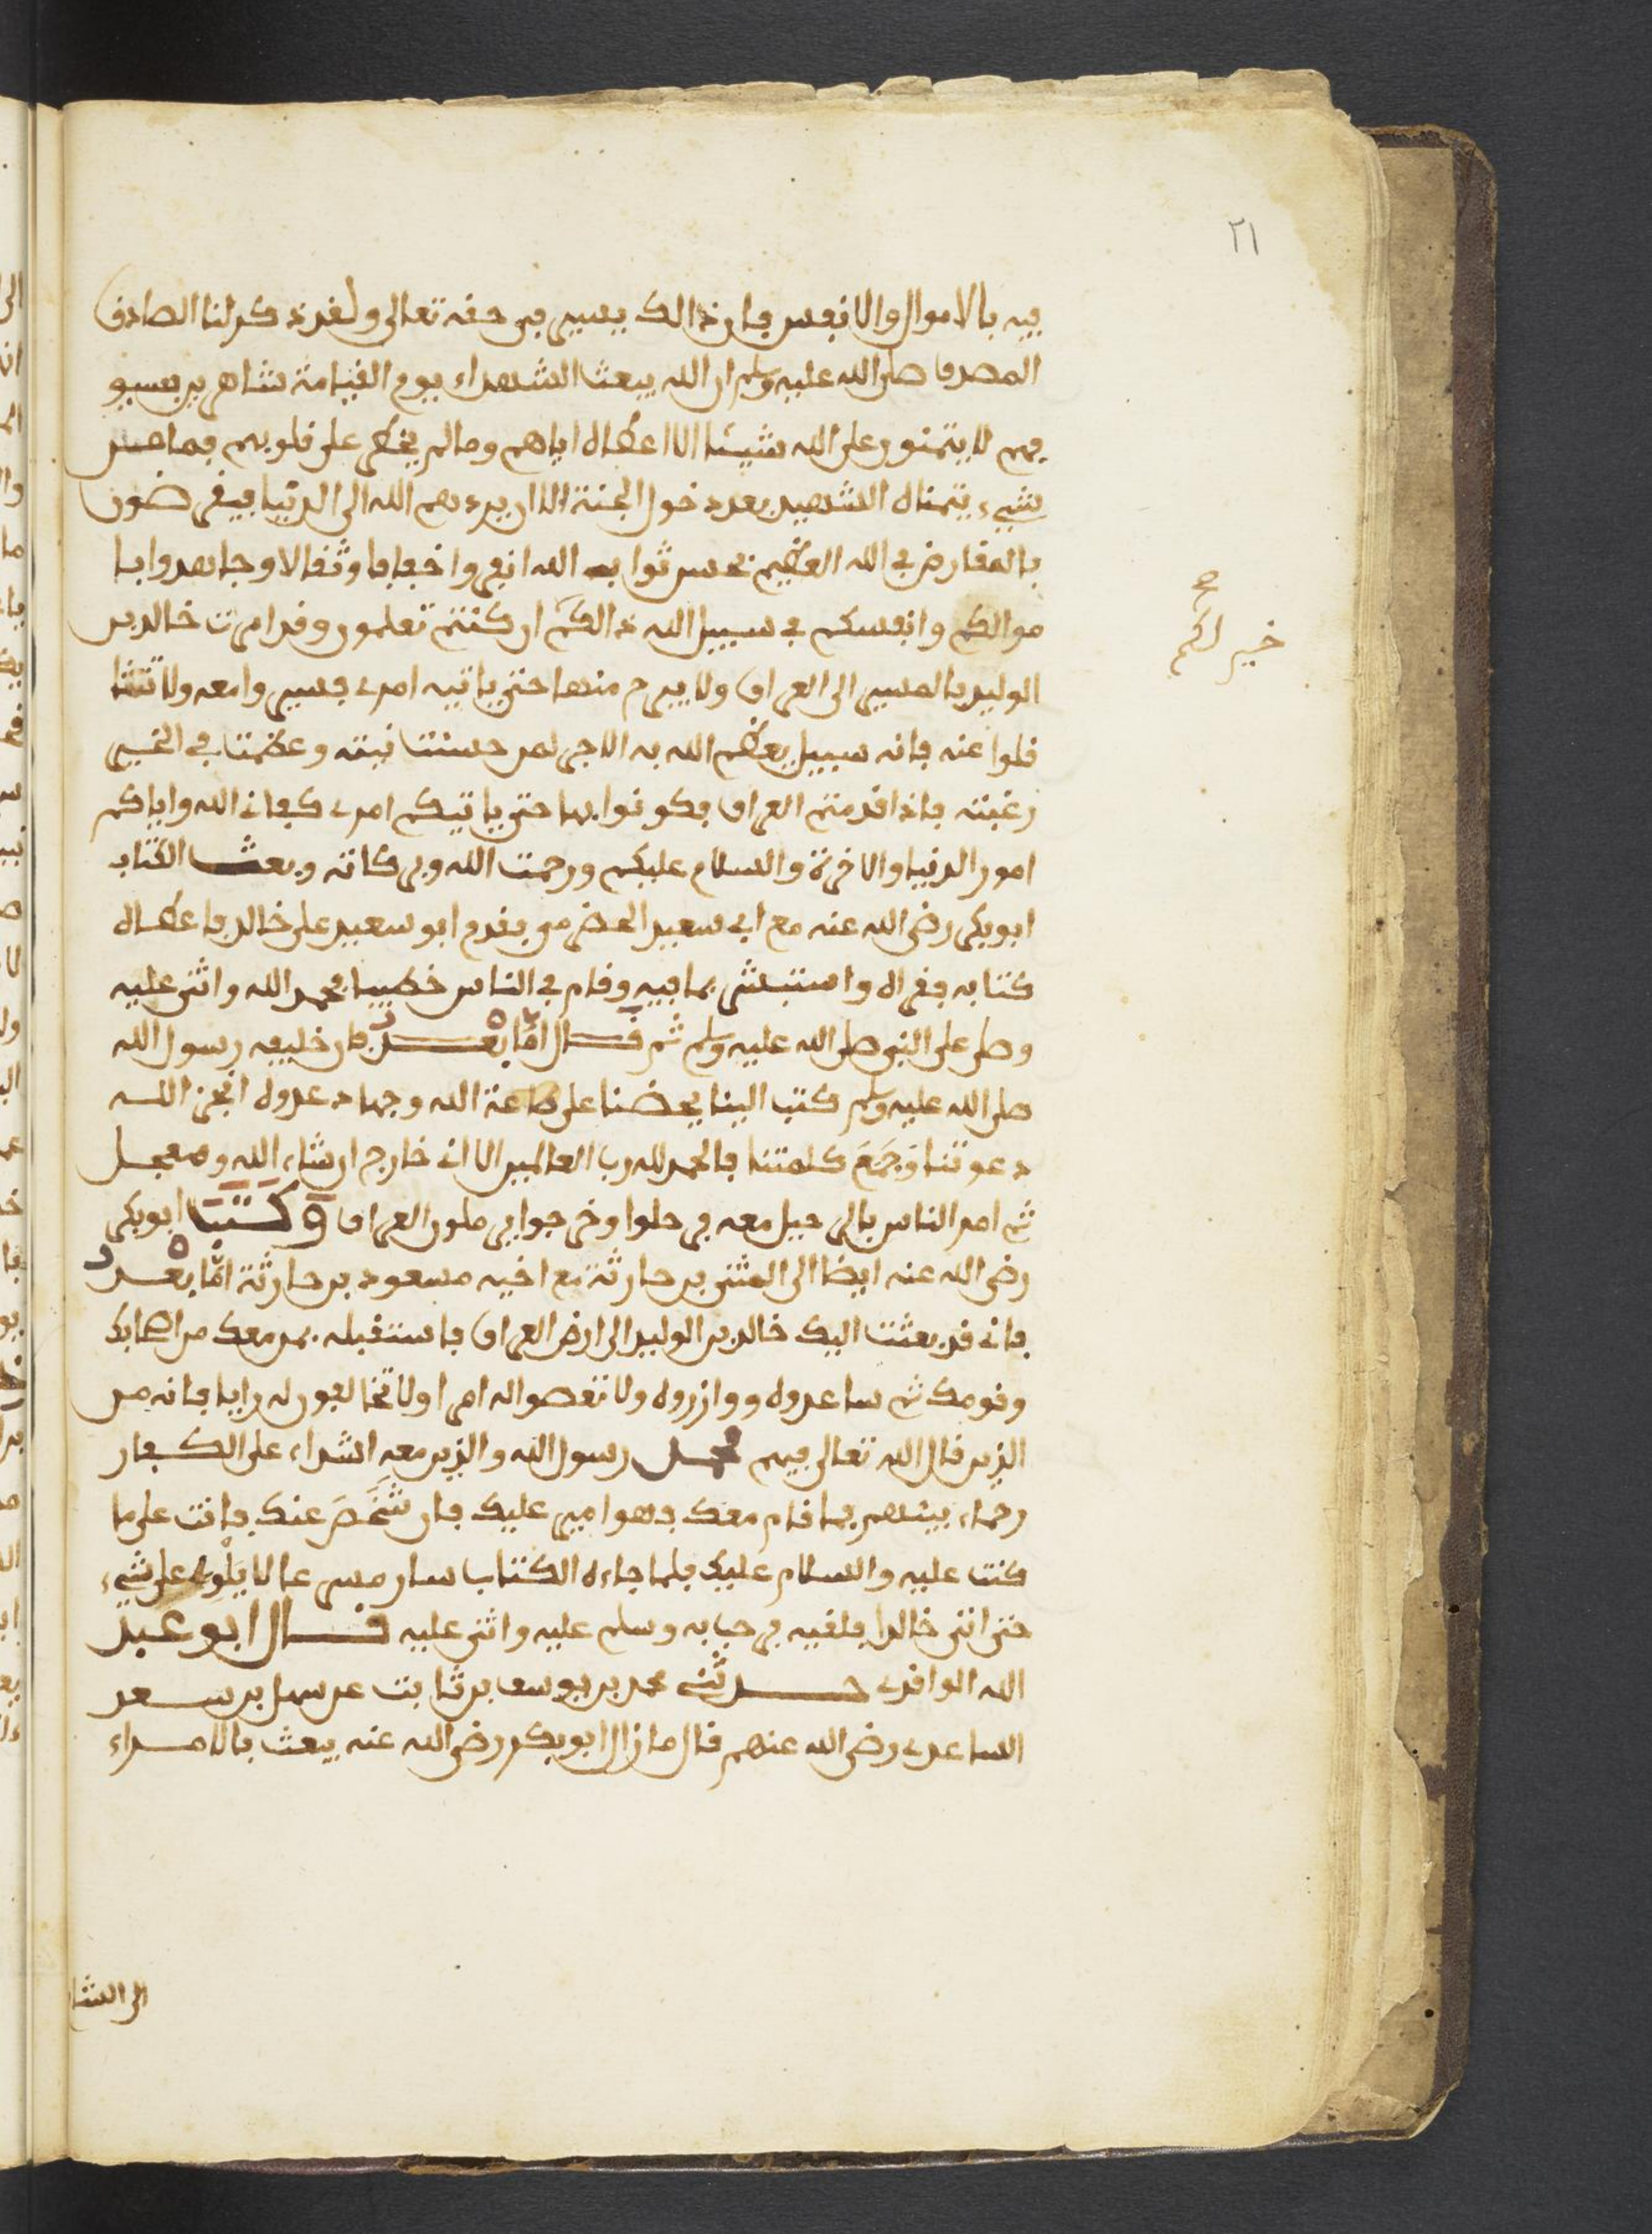 ٢١
فيه بالاموال والانفس فان ذالك يسير في حقه تعالى ولقد ذكر لنا الصادق
المصدق صلى الله عليه وسلم ان الله يبعث الشهداء يوم القيامة شاهرين سيو
فهم لا يتمنون على الله شيئا الا اعطاه اياهم وما لم يخطر على قلوبهم فما من
شيء يتمناه الشهيد بعد دخول الجنة الا ان يردهم الله الى الدنيا فيقرضون
بالمقارض في الله العظيم ثواب الله انفروا خفافا وثقالا وجاهدوا با
موالكم وانفسكم في سبيل الله ذالكم ان كنتم تعلمون وقد امرت خالد بن
خير لكم صح
الوليد بالمسير الى العراق ولا يبرح منها حتى ياتيه امري فسيروا معه ولا تتثا
قلوا عنه فانه سبيل يعظم الله به الاجر لمن حسنت نيته وعظمت في الخير
رغبته فاذا قدمتم العراق فكونوا بها حتى ياتيكم امري كفانى الله واياكم
امور الدنيا والاخرة والسلام عليكم ورحمت الله وبركاته وبعث الكتاب
ابوبكر رضى الله عنه مع ابي سعيد فقدم ابو سعيد على خالد فاعطاه
كتابه فقراه واستبشر بما فيه وقام في الناس خطيبا فحمد الله واثنى عليه
وصلى على النبي صلى الله عليه وسلم ثم قال اما بعد فان خليفه رسول الله
صلى الله عليه وسلم كتب الينا يحضنا على طاعة الله وجهاد عدوه انجز الله
دعوتنا وجمع كلمتنا فالحمد لله رب العالمين الا انى خارج ان شاء الله ومعجل
ثم امر الناس بالرحيل معه فرحلوا وخرجوا يريدون العراق وكتب ابوبكر
رضى الله عنه ايضا الى المثنى بن حارثة مع اخيه مسعود بن حارثة اما بعد
فانى قد بعثت اليك خالد بن الوليد الى ارض العراق فاستقبله بمن معك من اصحابك
وقومك ثم ساعدوه ووازروه ولا تعصوا له امرا ولا تخالفون له رايا فانه من
الذين قال الله تعالى فيهم محمد رسول الله والذين معه اشداء على الكفار
رحماء بينهم فما قام معك فهو امير عليك فان شخص عنك فانت على ما
كنت عليه والسلام عليك فلما جاءه الكتاب سار مسرعا لا يلوى على شيء
حتى اتى خالدا فلقيه فرحب به وسلم عليه واثنى عليه قال ابو عبد
الله الواقدي حدثنى محمد بن يوسف بن ثابت عن سهل بن سعد
الساعدي رضى الله عنهم قال ما زال ابو بكر رضى الله عنه يبعث بالامراء
الى الشا